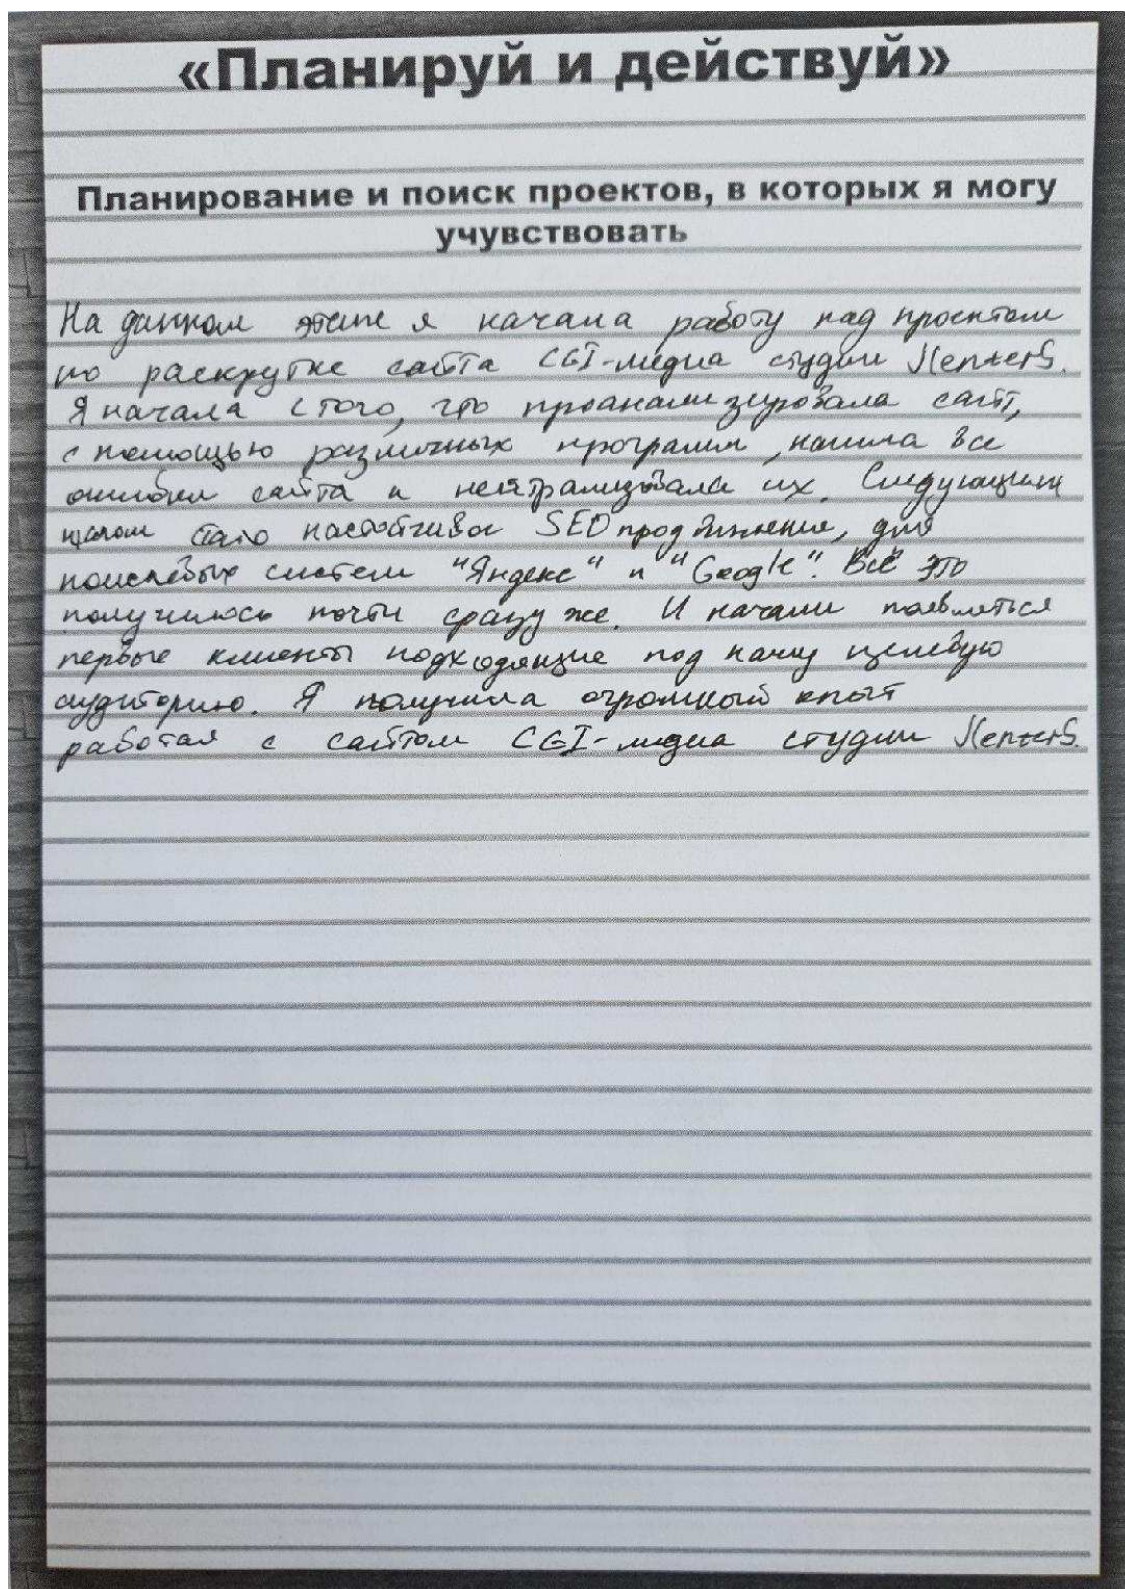 «Планируй и действуй»
Планирование и поиск проектов, в которых я могу
учувствовать
На данном этапе я начала работу над проектом
по раскрутке сайта CGI-медиа студии
Я начала с того, что проанализировала сайт,
с помощью различных программ, нашла все
ошибки сайта и нейтрализовала их. Следующим
шагом стало SEO продвижение, для
поисковых систем "Яндекс" и "Google". Всё это
получилось почти сразу же. И начали появляться
первые клиенты подходящие под нашу целевую
аудиторию. Я получила огромный опыт
работая с сайтом CGI-медиа студии